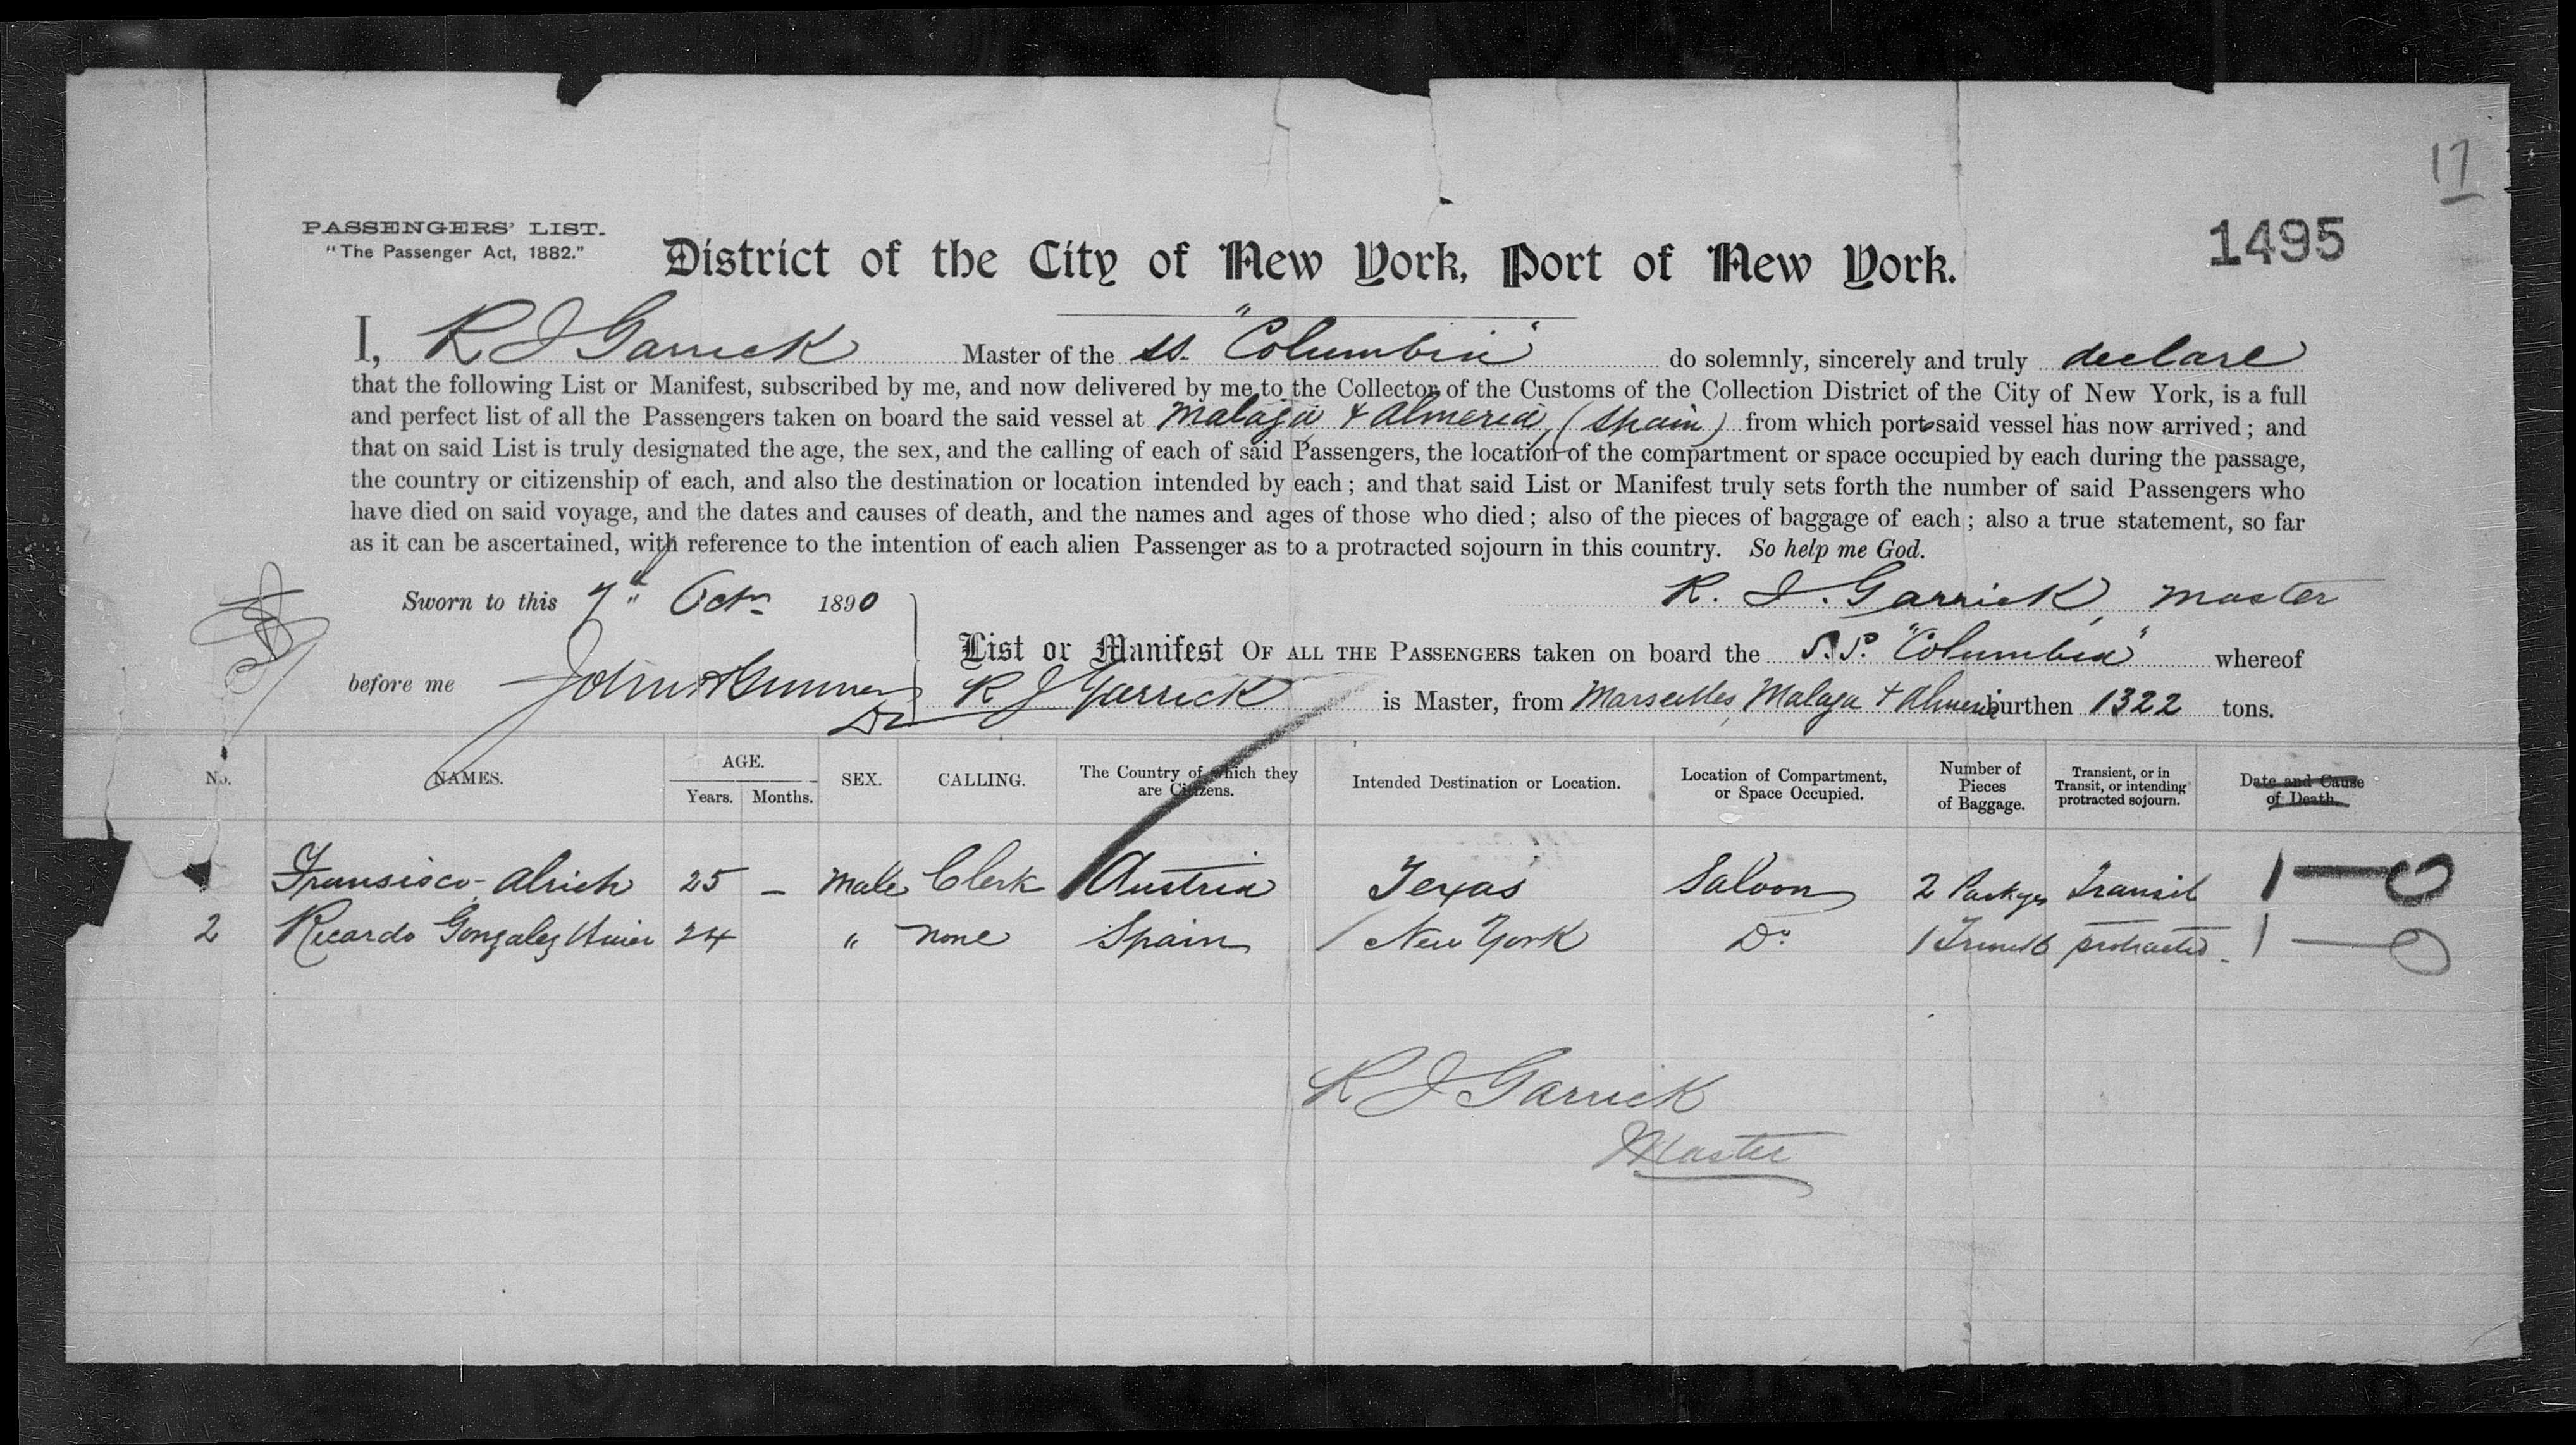 17
1495
PASSENGERS' LIST.
"The Passenger Act, 1882."
District of the City of New York, Port of New York.
I, R J Garrick Master of the ss. "Columbia" do solemnly, sincerely and truly declare
that the following List or Manifest, subscribed by me, and now delivered by me to the Collector of the Customs of the Collection District of the City of New York, is a full
and perfect list of all the Passengers taken on board the said vessel at Malaga & Almeria, (Spain) from which ports said vessel has now arrived; and
that on said List is truly designated the age, the sex, and the calling of each of said Passengers, the location of the compartment or space occupied by each during the passage,
the country or citizenship of each, and also the destination or location intended by each; and that said List or Manifest truly sets forth the number of said Passengers who
have died on said voyage, and the dates and causes of death, and the names and ages of those who died; also of the pieces of baggage of each; also a true statement, so far
as it can be ascertained, with reference to the intention of each alien Passenger as to a protracted sojourn in this country. So help me God.
Sworn to this 7" Octr 1890
R. J. Garrick, Master
List or Manifest OF ALL THE PASSENGERS taken on board the S.S. "Columbia" whereof
before me John
R J Garrick is Master, from Marseilles, Malaga & Almeria burthen 1322 tons.
No. NAMES. AGE. Years. Months. SEX. CALLING. The Country of which they are Citizens. Intended Destination or Location. Location of Compartment, or Space Occupied. Number of Pieces of Baggage. Transient, or in Transit, or intending protracted sojourn. Date and Cause of Death.
Fransisco Alrich 25 – Male Clerk Austria Texas Saloon 2 Packges Transit 1 – 0
2 Ricardo Gonzalez 24 " none Spain New York Do 1 Trunk protracted 1 – 0
R J Garrick
Master